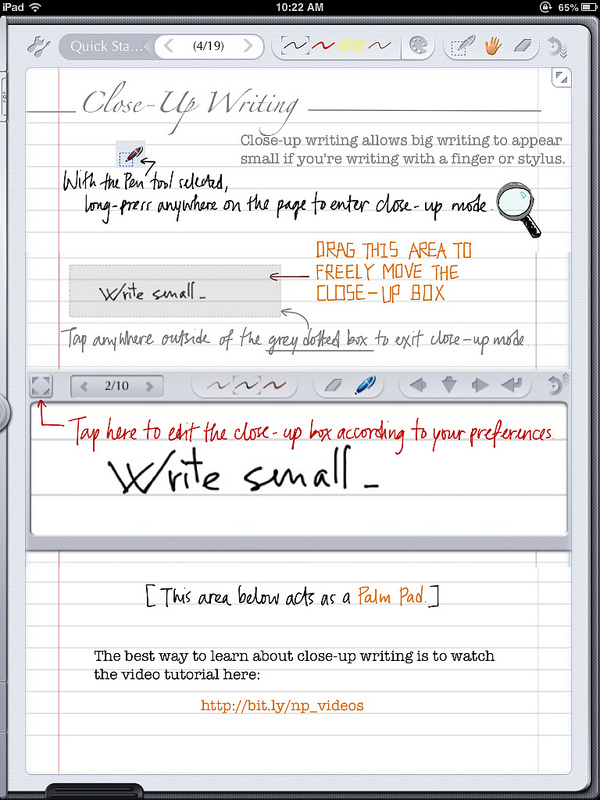 iPad 10:22 AM 65%
Quick Sta... (4/19)
Close-Up Writing
Close-up writing allows big writing to appear
small if you're writing with a finger or stylus.
With the Pen tool selected,
long-press anywhere on the page to enter close-up mode.
DRAG THIS AREA TO
FREELY MOVE THE
CLOSE-UP BOX
Write small_
Tap anywhere outside of the grey dotted box to exit close-up mode
2/10
Tap here to edit the close-up box according to your preferences
Write small_
[This area below acts as a Palm Pad.]
The best way to learn about close-up writing is to watch
the video tutorial here:
http://bit.ly/np_videos